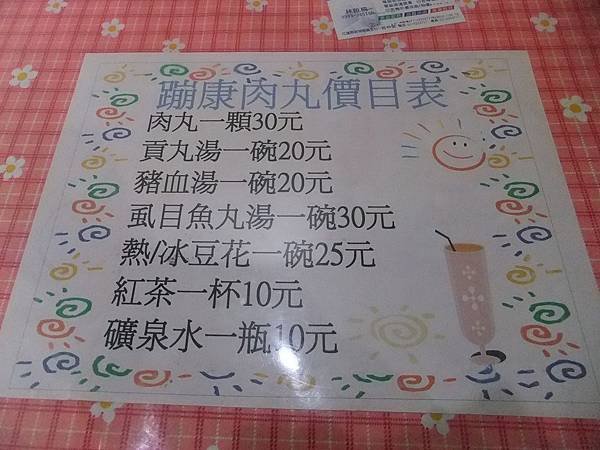 蹦康肉丸價目表
肉丸一顆30元
貢丸湯一碗20元
豬血湯一碗20元
虱目魚丸湯一碗30元
熱/冰豆花一碗25元
紅茶一杯10元
礦泉水一瓶10元